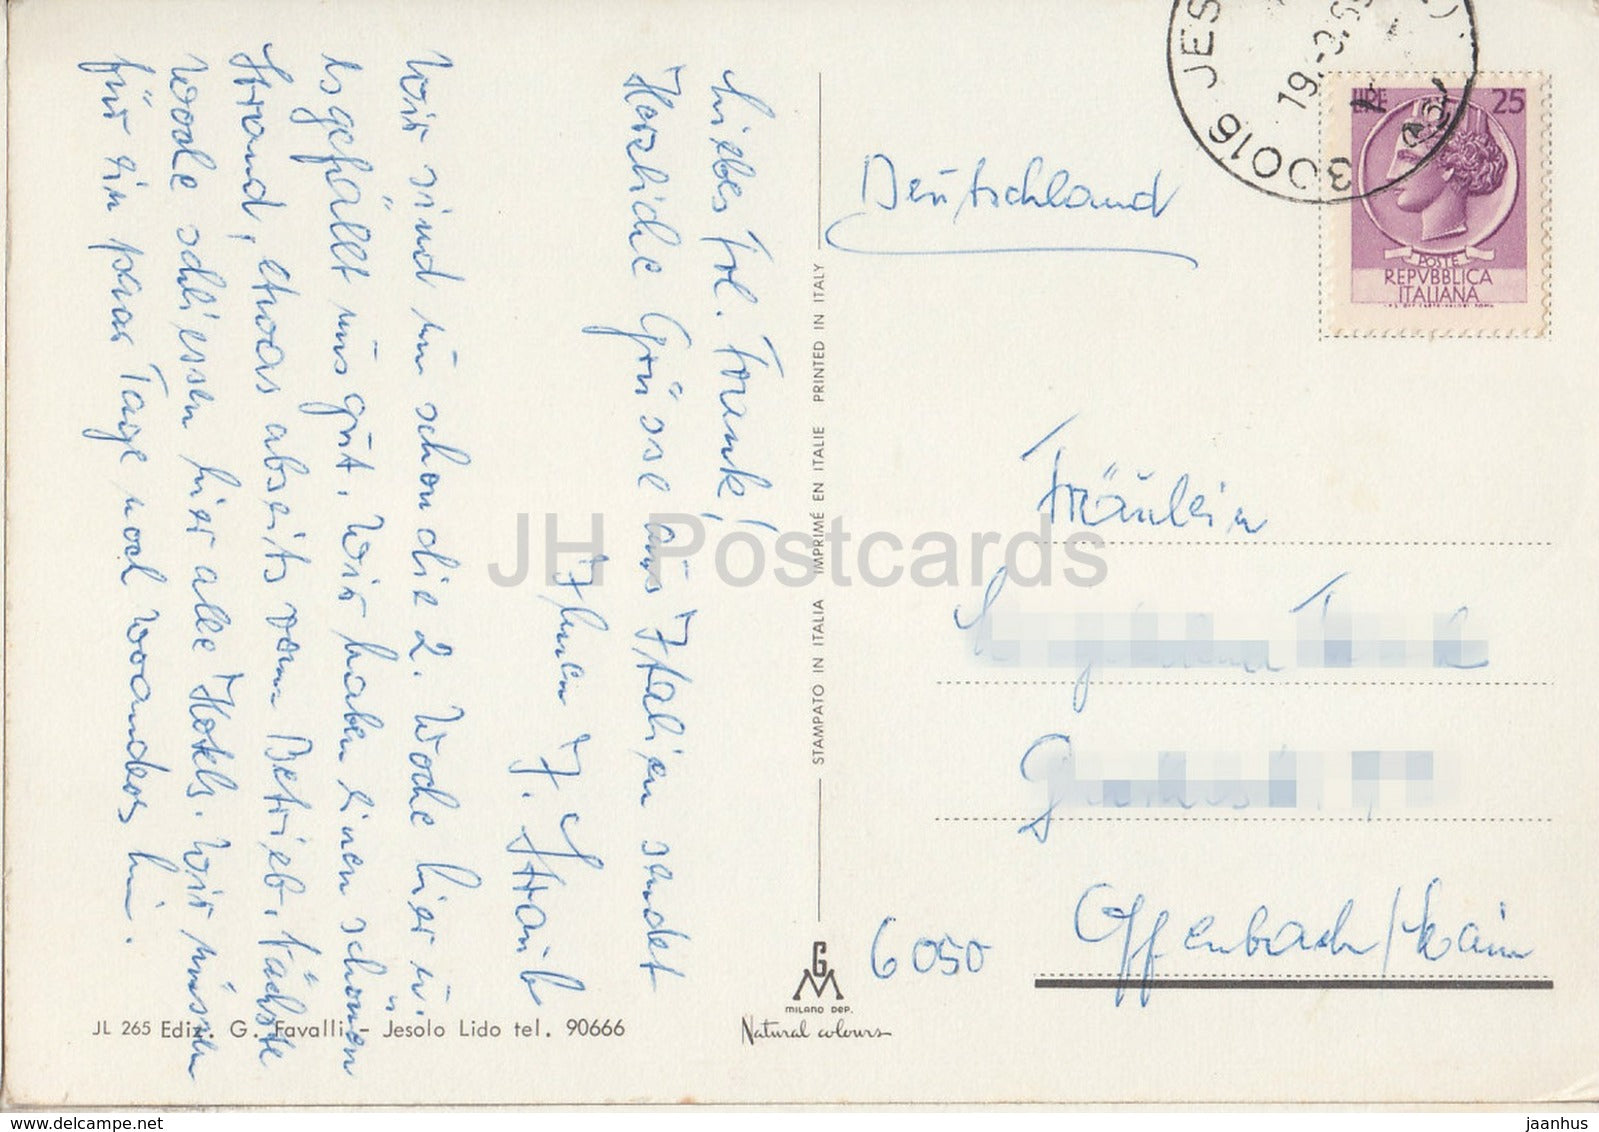 Liebes Frl. Frank!
Herzliche Grüsse aus Italien sendet
Ihnen J. Straub
Wir sind nun schon die 2. Woche hier u.
es gefällt uns gut. Wir haben einen schönen
Strand, etwas abseits vom Betrieb. Nächste
Woche schliessen hier alle Hotels. Wir müssen
für ein paar Tage noch woanders hin.
JL 265 Ediz. G. Favalli - Jesolo Lido tel. 90666
STAMPATO IN ITALIA IMPRIMÉ EN ITALIE PRINTED IN ITALY
GM
MILANO DEP.
Natural colours
30016 JES
19.
LIRE 25
POSTE
REPVBBLICA
ITALIANA
Deutschland
Fräulein
6050 Offenbach/Main
JH Postcards
www.delcampe.net
jaanhus